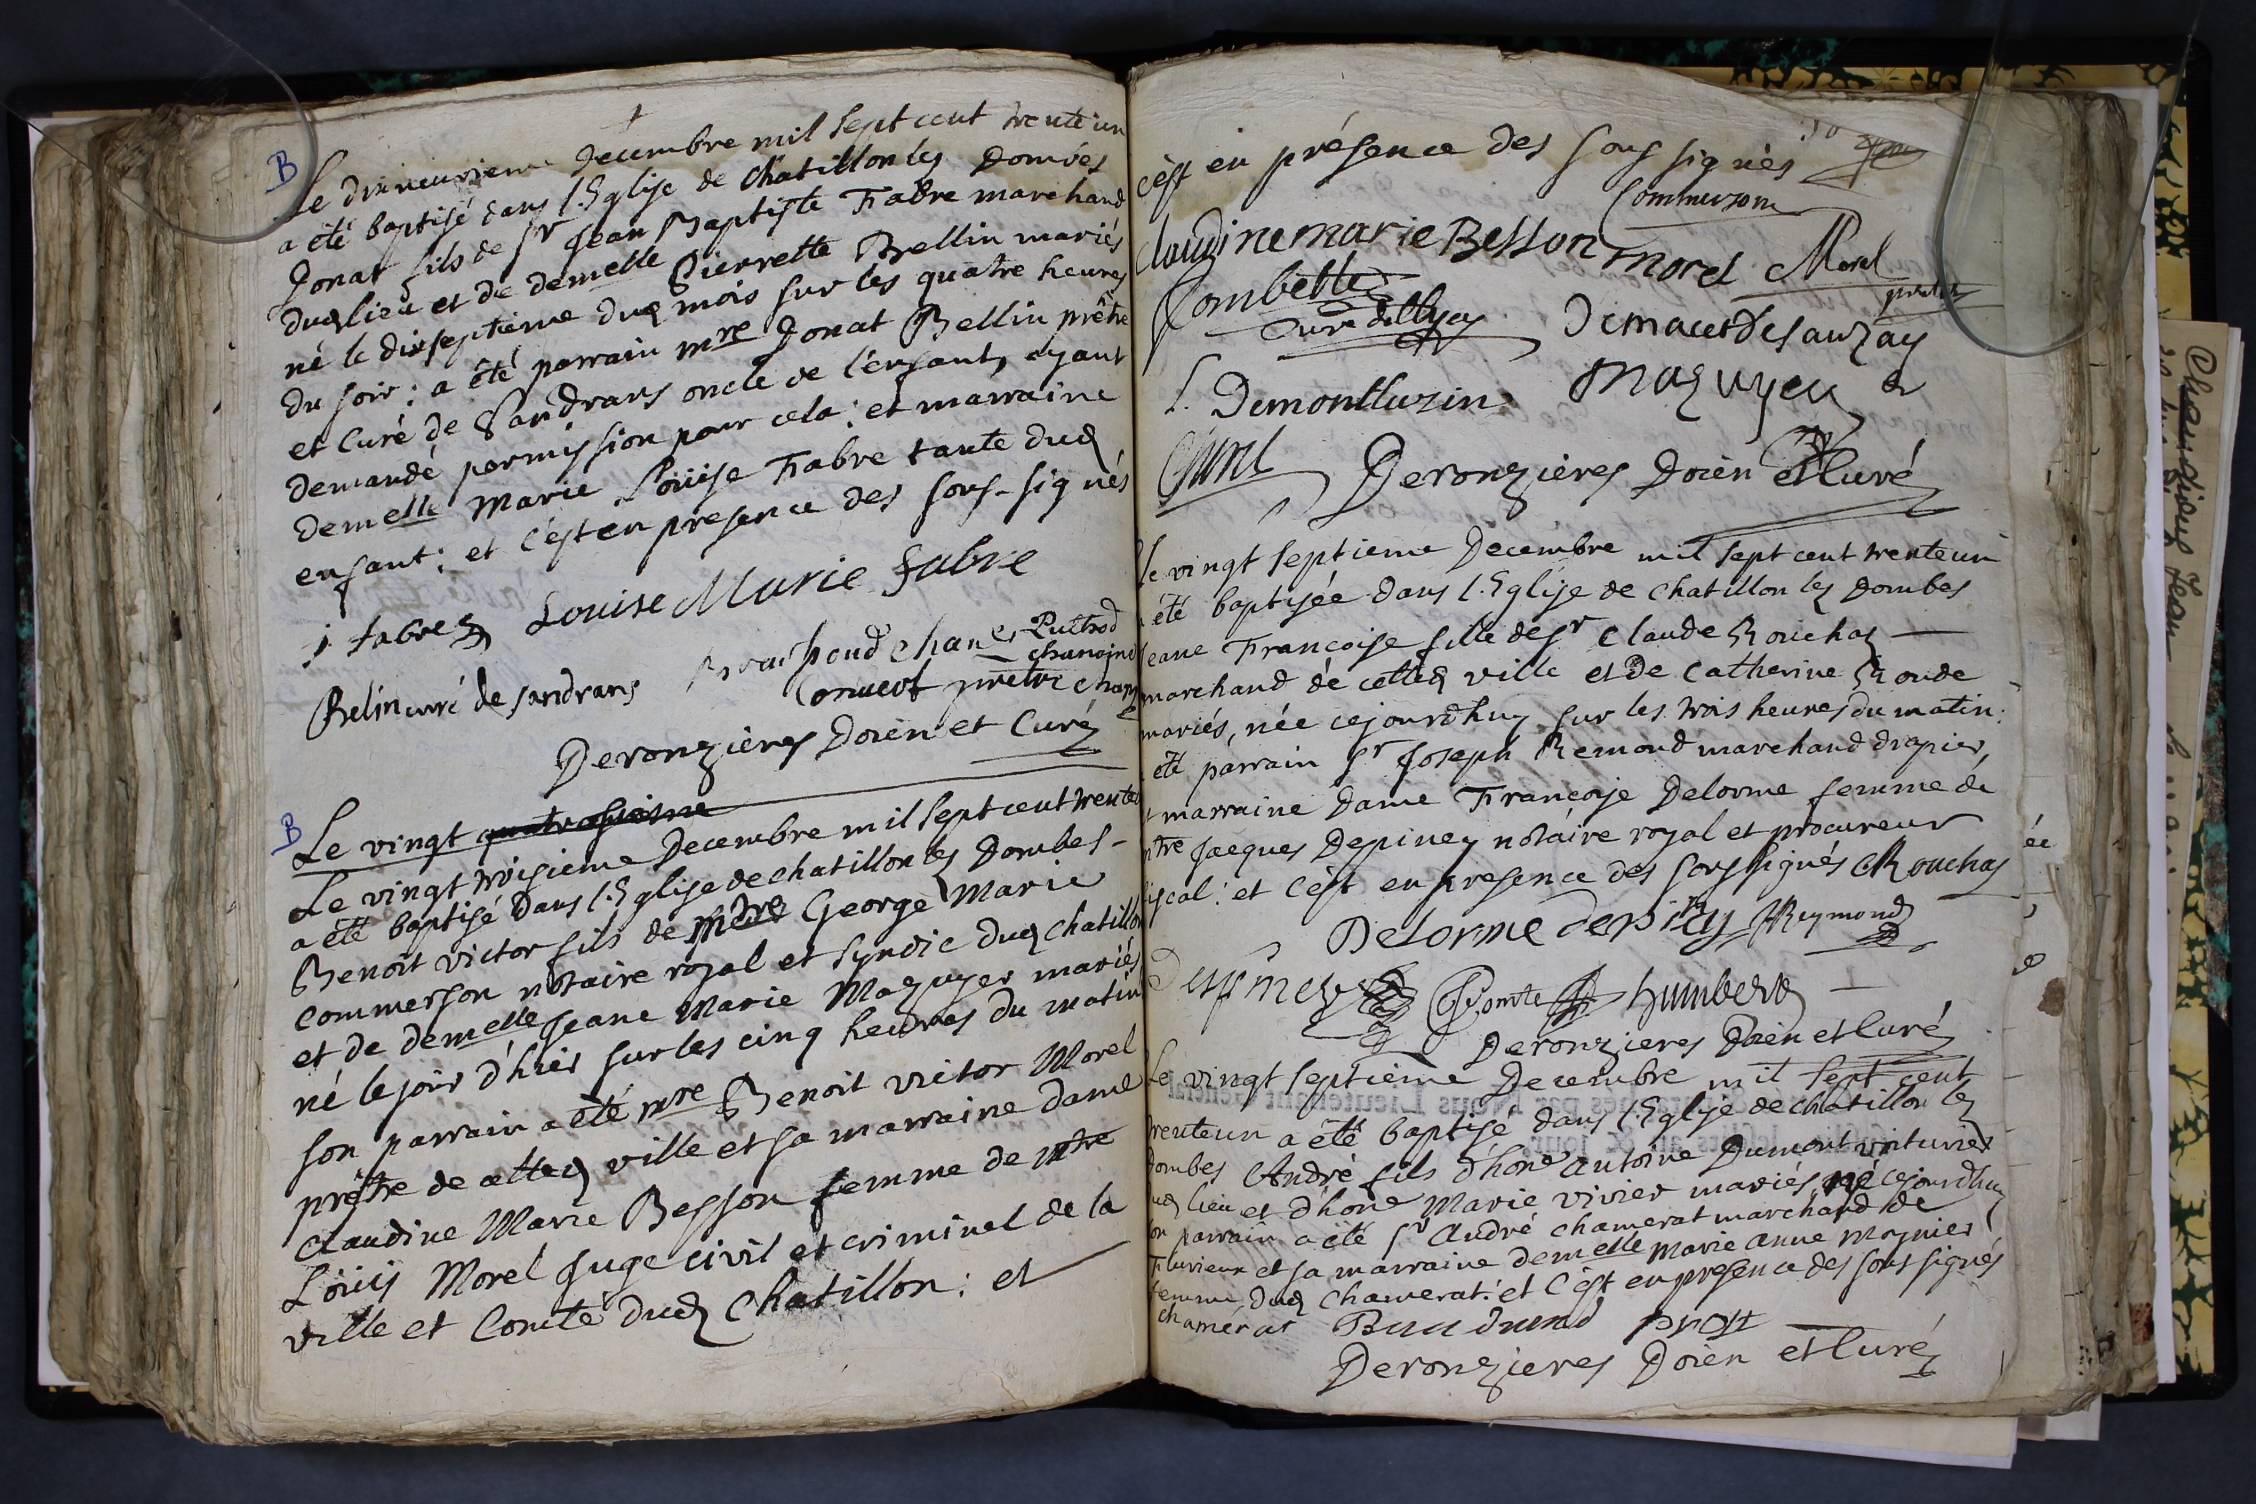 B
Le dixneuvieme Decembre mil sept cent trente un
a été baptisé dans l'Eglise de Chatillon les Dombes
Donat fils de Sr Jean Baptiste Fabre marchand
dud lieu et de demelle Pierrette Bellin mariés
né le dixseptieme dud mois sur les quatre heures
du soir : a été parrain mre Donat Bellin prêtre
et Curé de Sandrans oncle de l'enfant, ayant
demandé permission pour cela : et marraine
demelle Marie Loüise Fabre tante dud
enfant : et c'est en presence des sous-signés
j. fabre Louise Marie fabre
Belin curé de sandrans
chanoine
prêtre
Deronzieres Doien et Curé
B
Le vingt quatresieme
Le vingt troisieme Decembre mil sept cent trente
a été baptisé dans l'Eglise de chatillon les Dombes -
Benoit victor fils de George Marie
Commerson notaire royal et syndic dud chatillon
et de demelle Jeane Marie Mazuyer mariés
né le jour d'hier sur les cinq heures du matin
son parrain a été mre Benoit victor Morel
prêtre de cette ville et sa marraine dame
Claudine Marie Besson femme de mtre
Loüis Morel Juge civil et criminel de la
ville et Comté dud Chatillon : et
c'est en présence des sous signés
Commerson
Claudine marie Besson morel Morel
prêtre
Combette
Curé
Demontluzin
Mazuyer
Deronzières Doien et Curé
Le vingt septieme Decembre mil sept cent trente un
été baptisée dans l'Eglise de chatillon les Dombes
Jeane Françoise fille de Sr Claude Rouchas
marchand de cette ville et de Catherine Ronde
mariés, née cejourdhuy sur les trois heures du matin :
été parrain Sr Joseph Remond marchand drapier,
marraine Dame Françoise Delorme femme de
mtre Jacques Depiney notaire royal et procureur
fiscal : et c'est en presence des sous signés Rouchas
Delorme depiney Reymond
Comte humbert
Deronzieres Doien et Curé
Le vingt septieme Decembre mil sept cent
trente un a été baptisé dans l'Eglise de chatillon les
Dombes André fils d'hone antoine Dumont voiturier
dud lieu et d'hone Marie vivier mariés né cejourdhuy
son parrain a été Sr André chamerat marchand de
Fleurieux et sa marraine demelle marie anne moynier
femme dud Chamerat : et c'est en presence des sous signés
chamerat
Deronzieres Doien et Curé